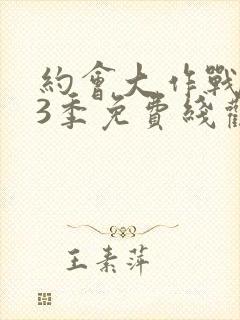 約會大作戰
3季免費綫觀
王素萍